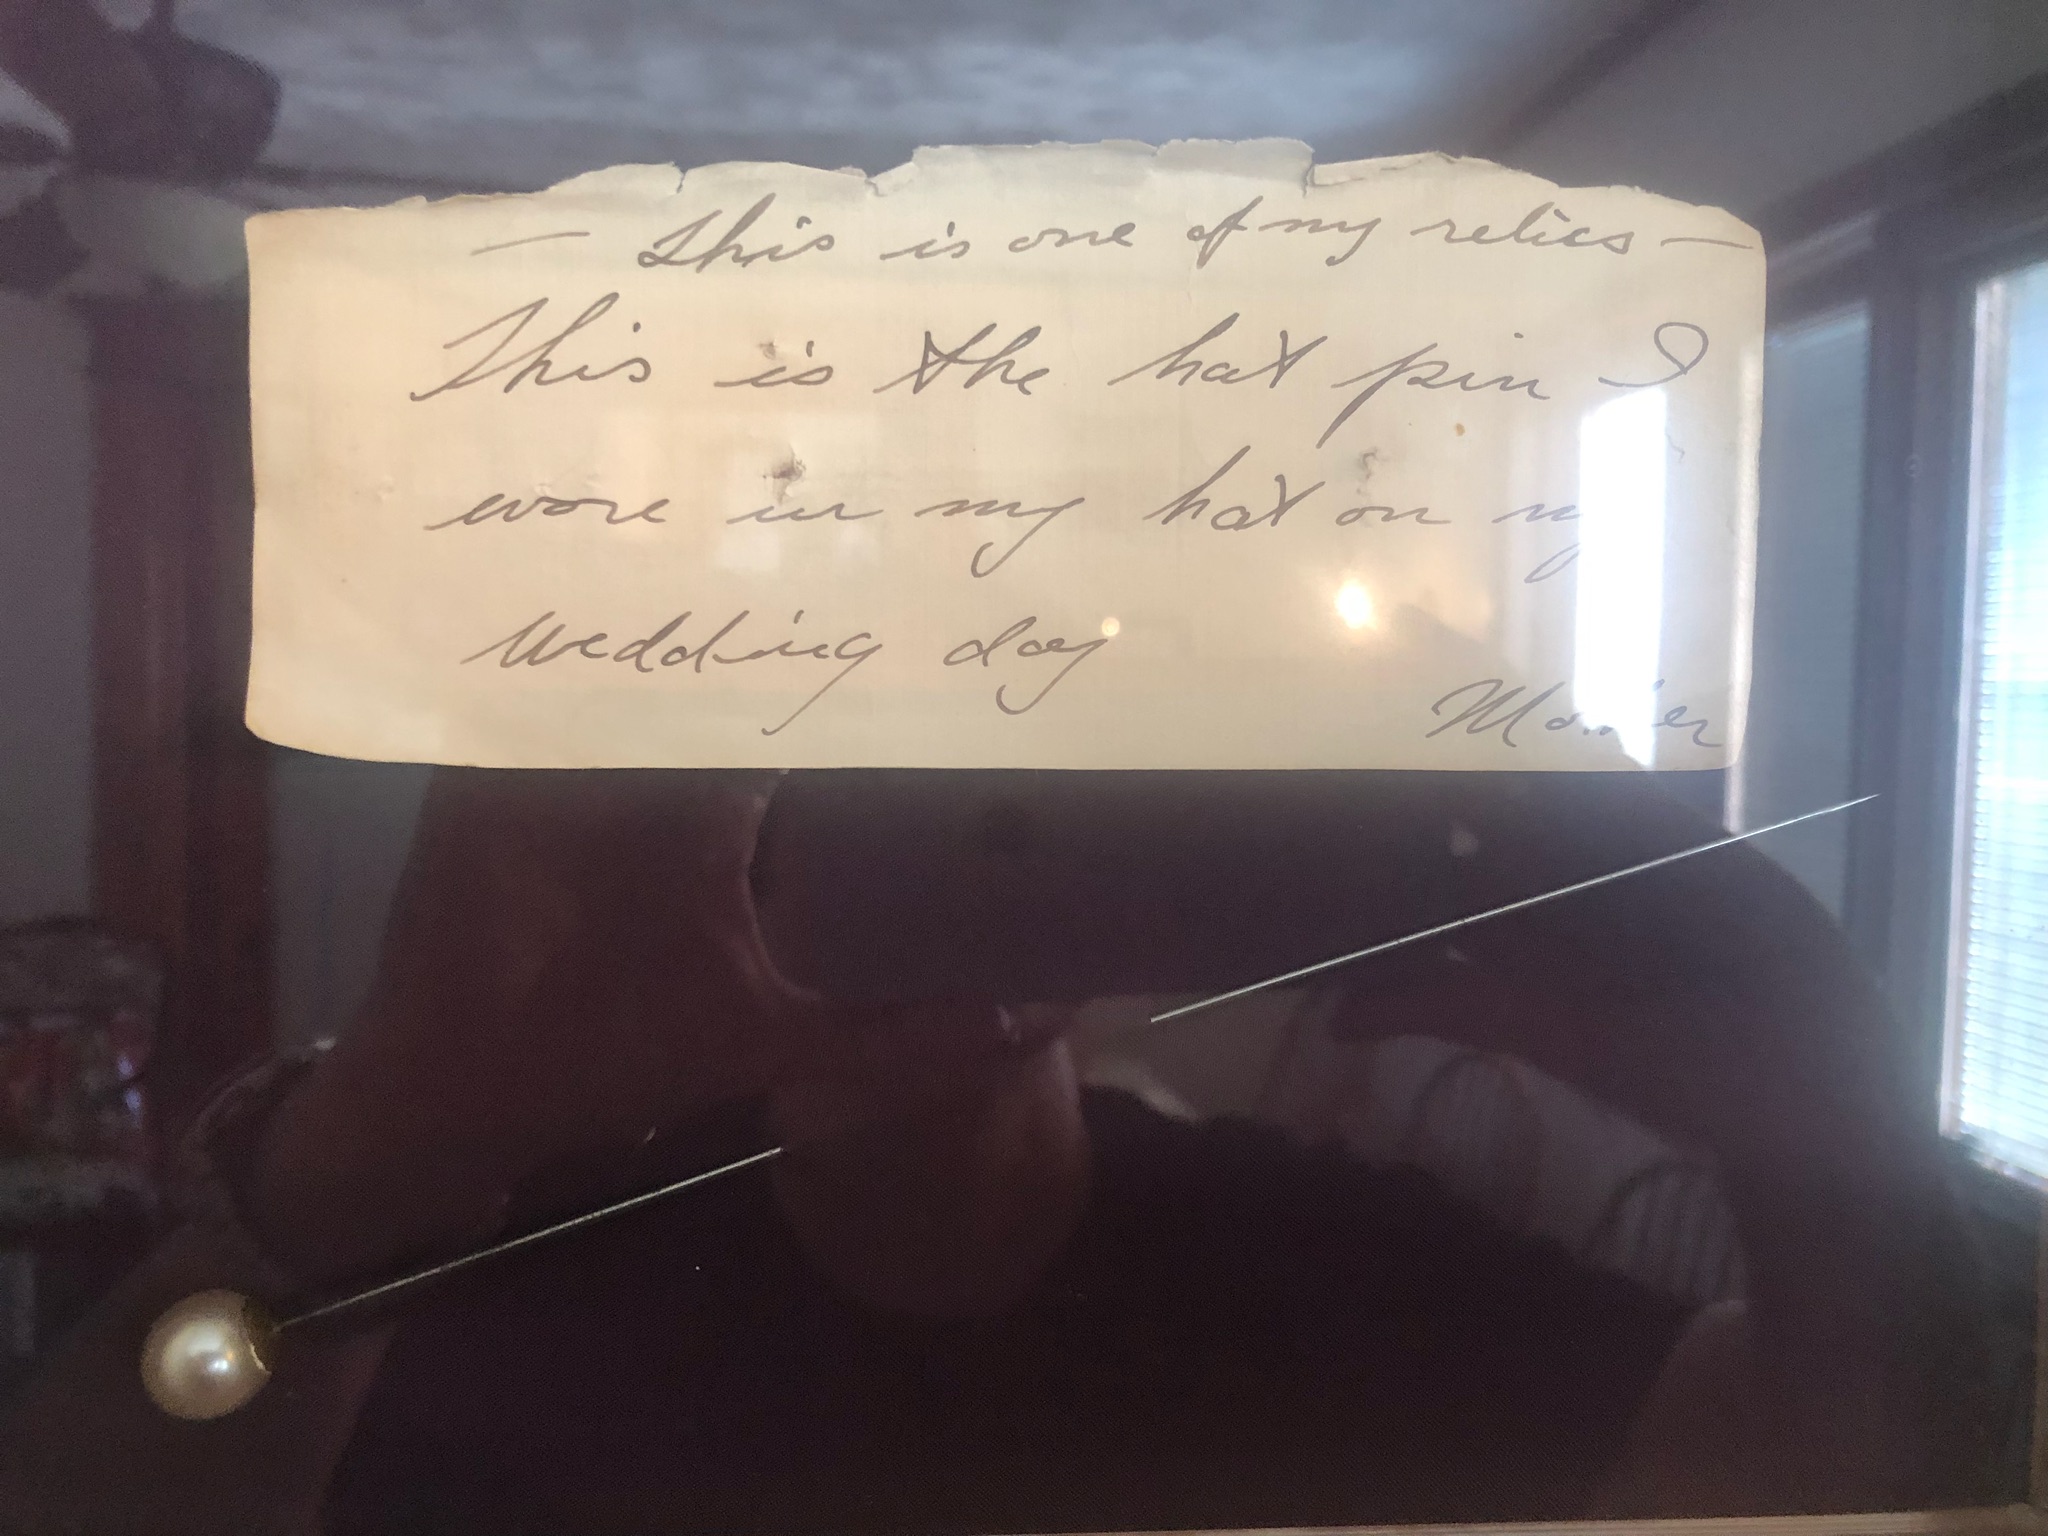 — This is one of my relics —
This is the hat pin I
wore in my hat on my
wedding day
Mother